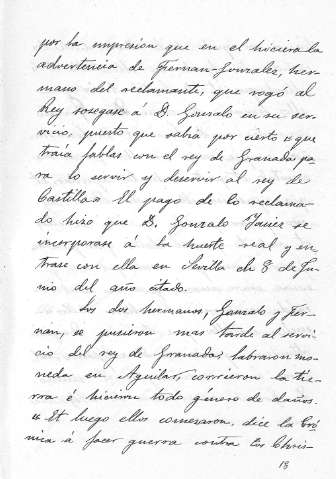 por la impresion que en el hiciera la
advertencia de Fernan-Gonzalez, her-
mano del reclamante, que rogó al
Rey sosegase á D. Gonzalo en su ser-
vicio, puesto que sabia por cierto « que
traía fablas con el rey de Granada pa
ra lo servir y deservir al rey de
Castilla» El pago de lo reclama-
do hizo que D. Gonzalo Yañez se
incorporase á la hueste real y en-
trase con ella en Sevilla el 8 de Ju-
nio del año citado.
Los dos hermanos, Gonzalo y Fer-
nan, se pusieron mas tarde al servi-
cio del rey de Granada, labraron mo-
neda en Aguilar, corrieron la tie-
rra é hicieron todo género de daños.
« Et luego ellos comenzaron, dice la Cró
nica á facer guerra contra los Chris-
18